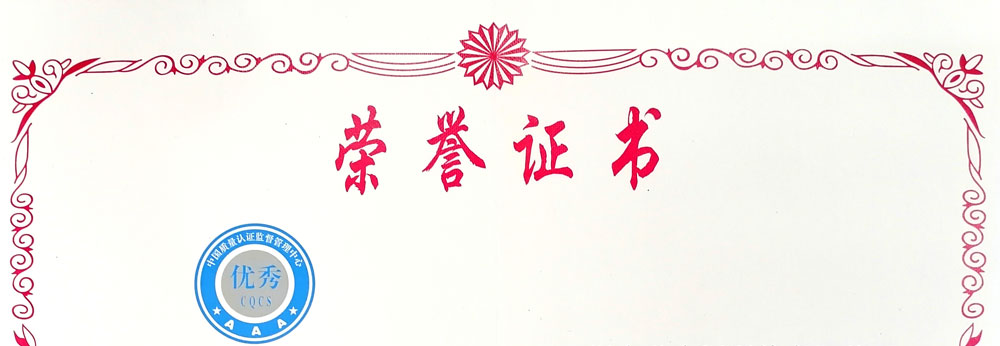 荣誉证书
中国质量认证监督管理中心
优秀
CQCS
AAA